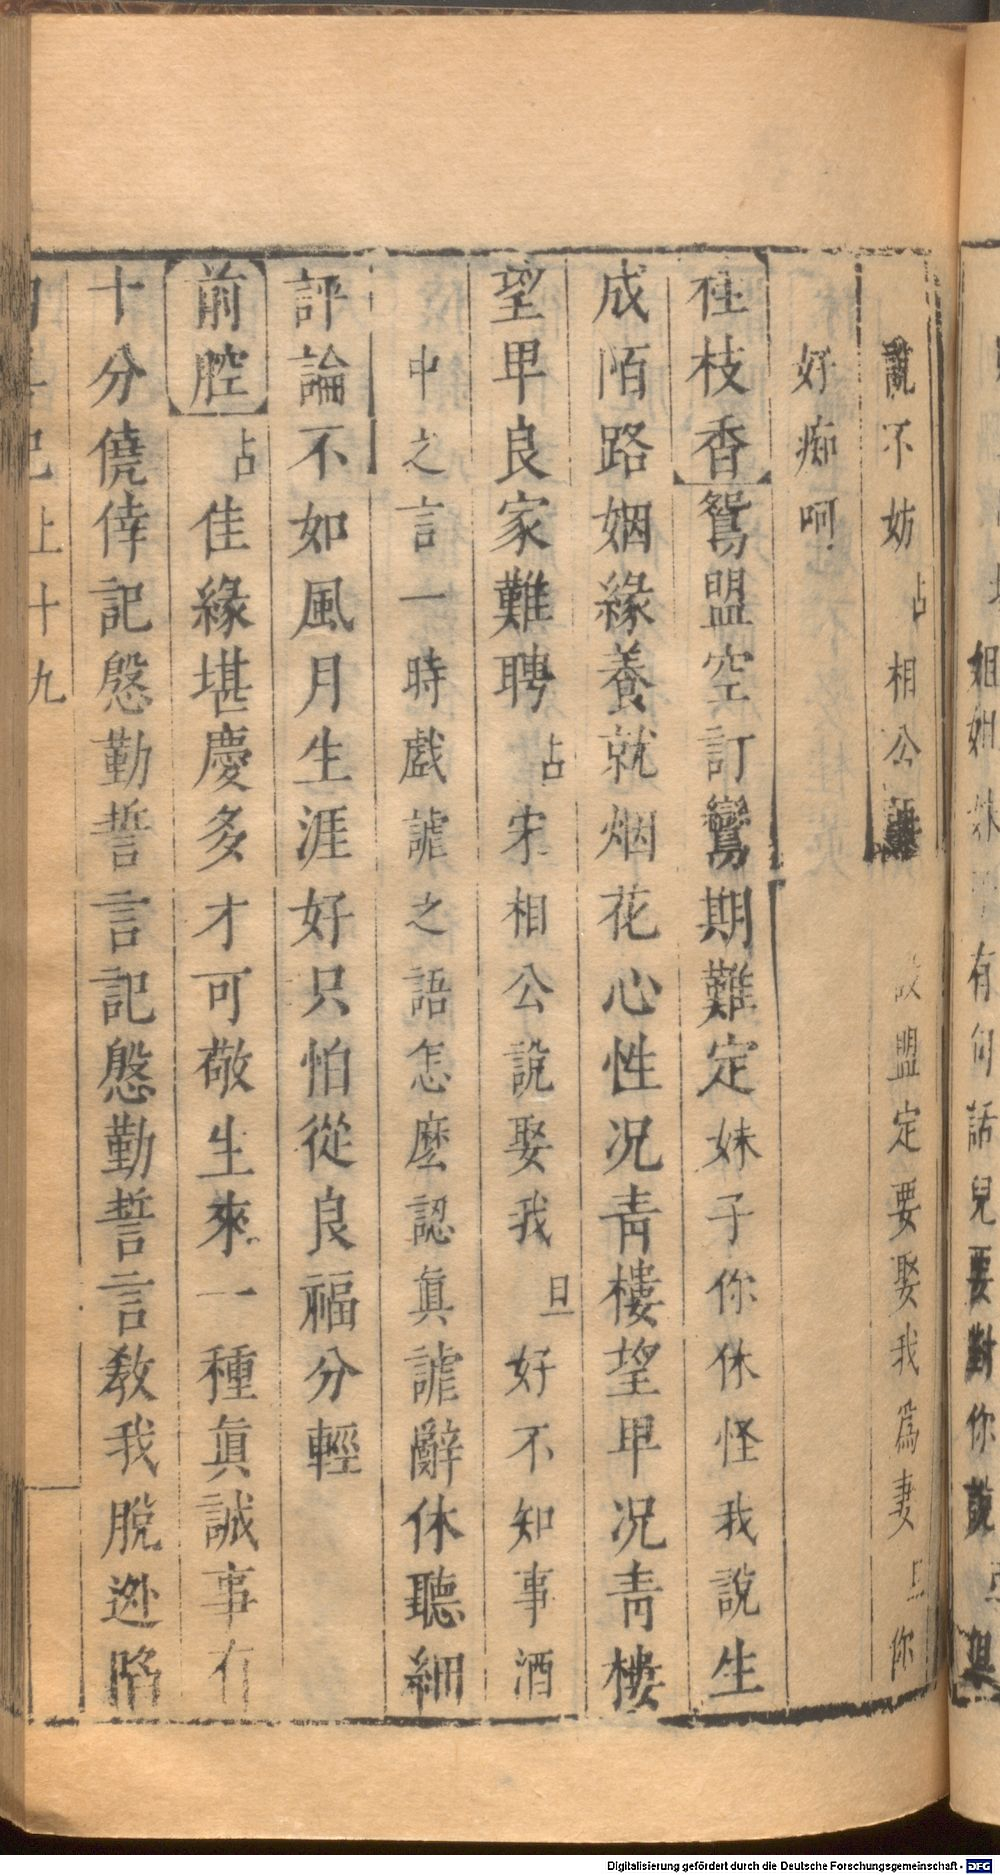 姐姐
有句話兒要對你說
說不妨占相公
設盟定要娶我為妻旦你
好痴呵
桂枝香鴛盟空訂鸞期難定妹子你休怪我說生
成陌路姻緣養就烟花心性况青樓望甲况青樓
望甲良家難聘占宋相公說娶我旦好不知事酒
中之言一時戲謔之語怎麽認眞謔辭休聽細
評論不如風月生涯好只怕從良福分輕
前腔占佳緣堪慶多才可敬生來一種眞誠事有
十分僥倖記慇勤誓言記慇勤誓言教我脫逃陷
記上十九
Digitalisierung gefördert durch die Deutsche Forschungsgemeinschaft - DFG